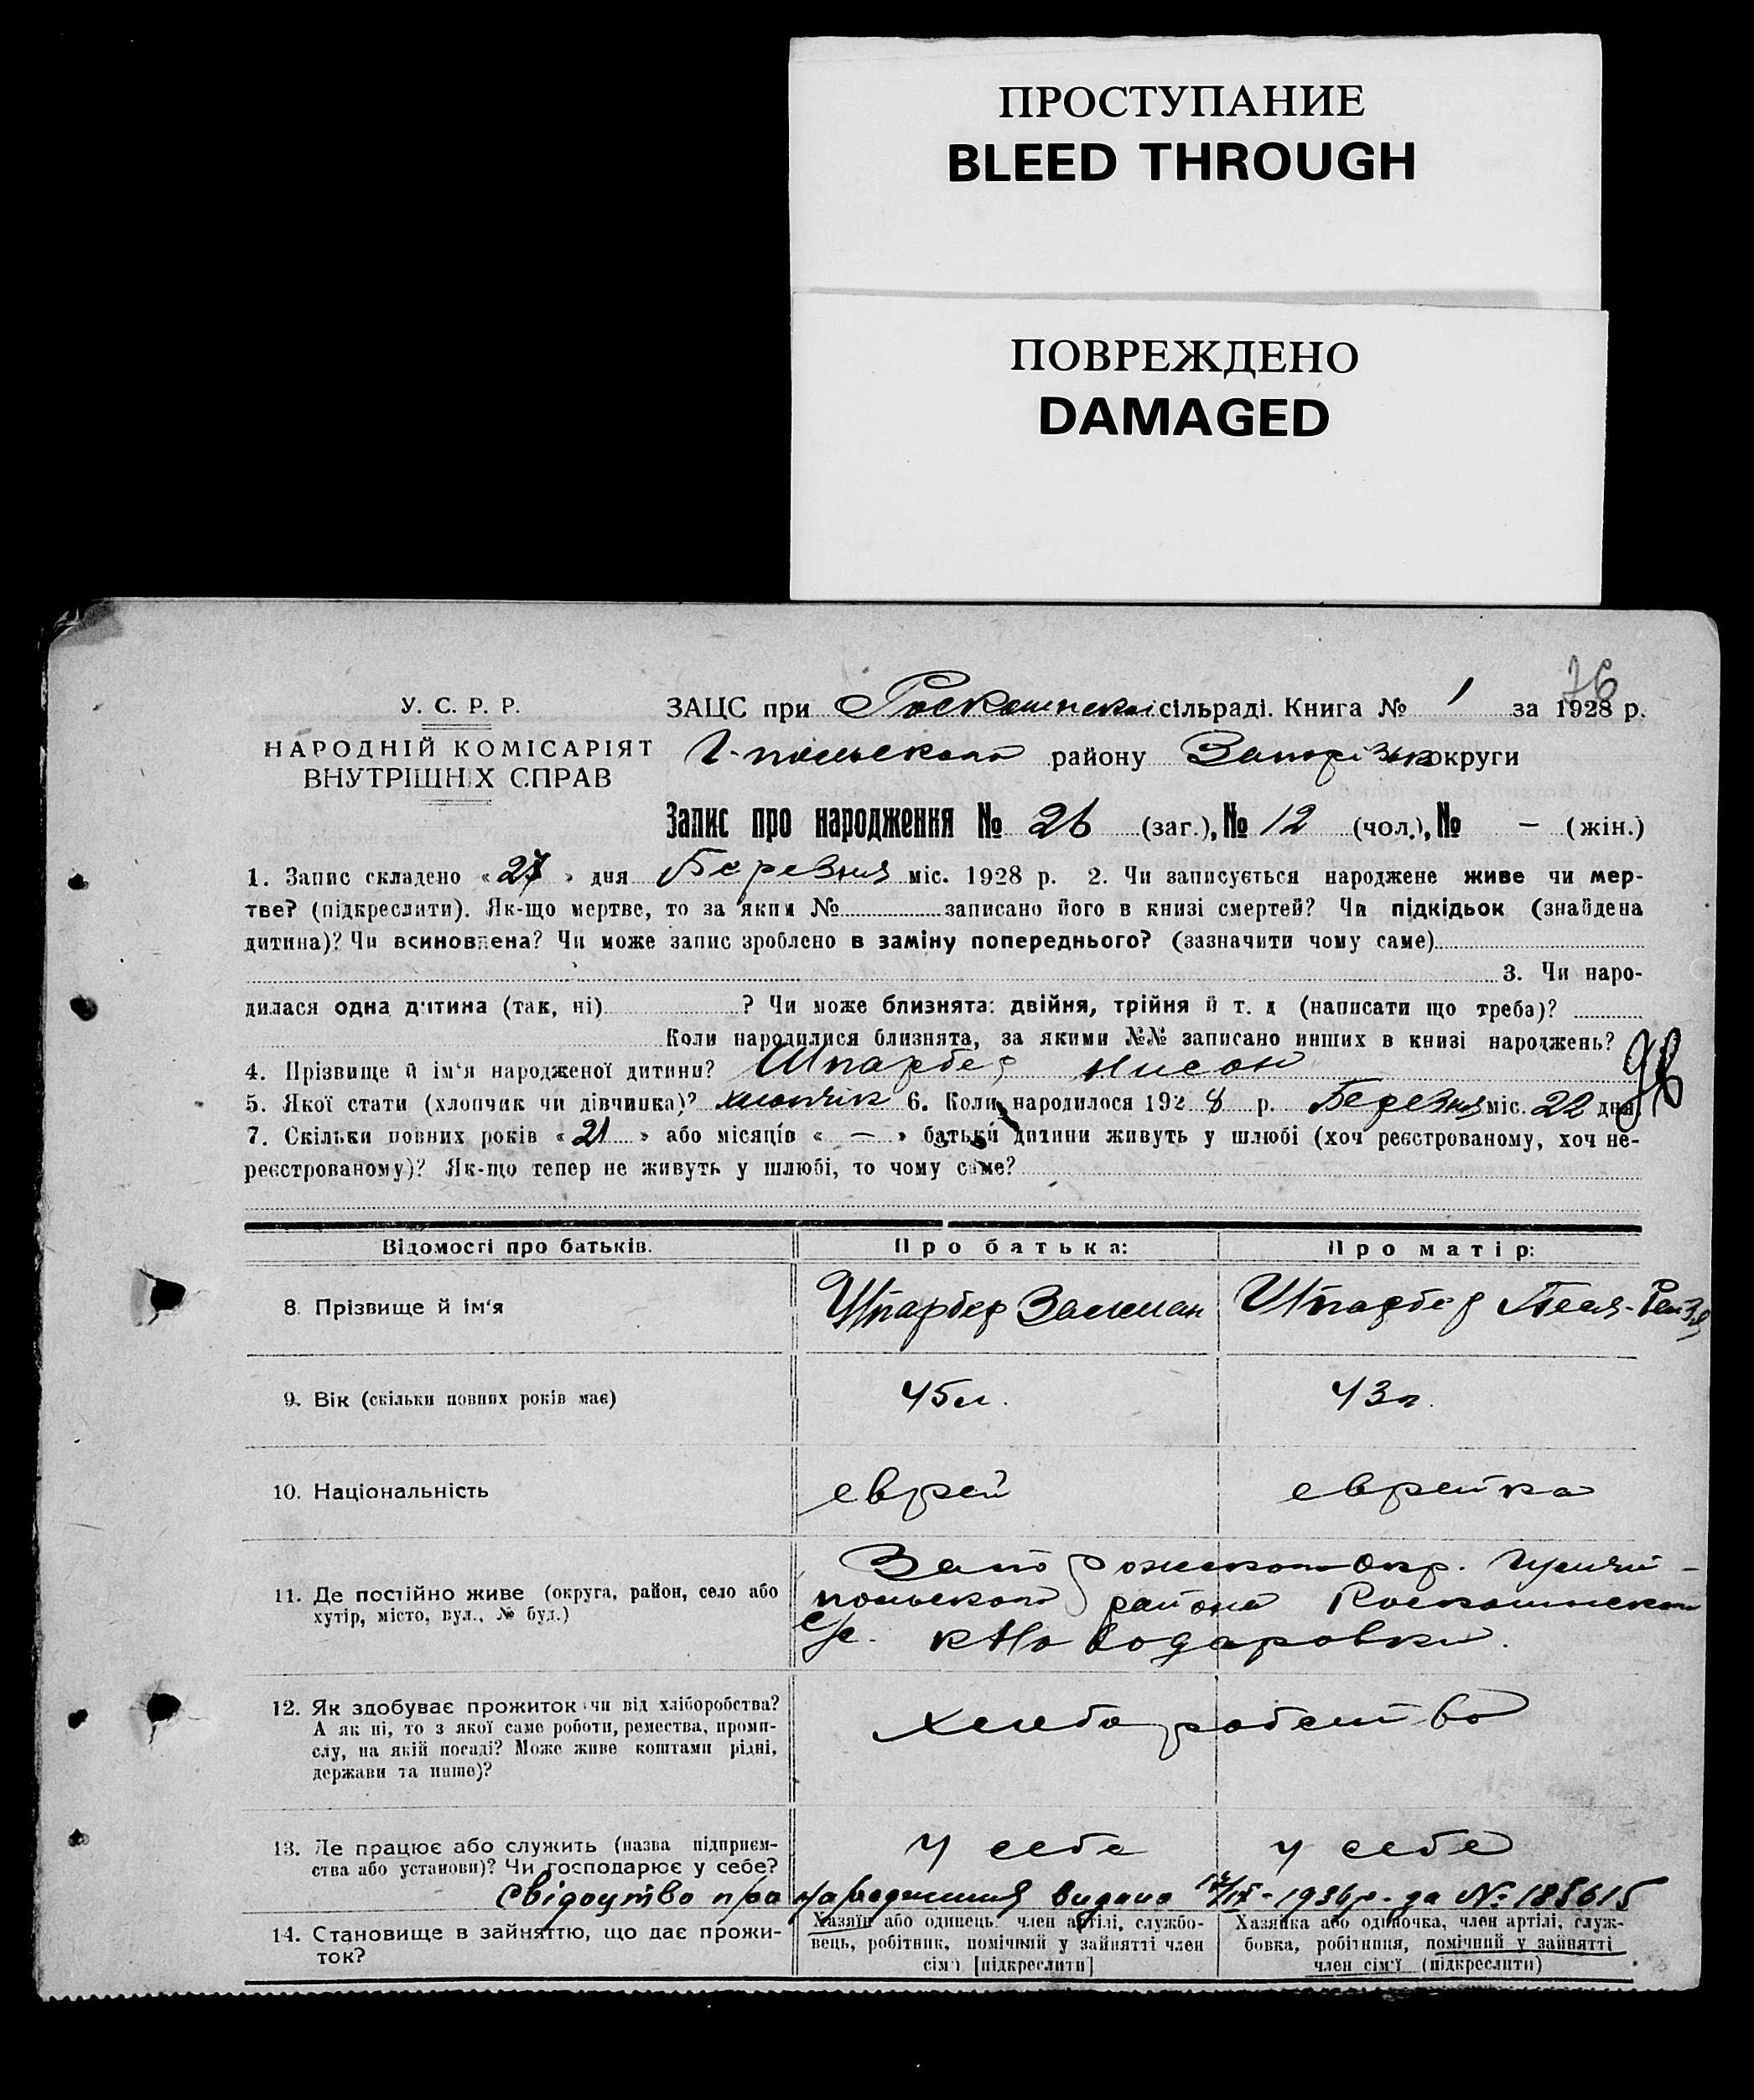 ПРОСТУПАНИЕ
BLEED THROUGH
ПОВРЕЖДЕНО
DAMAGED
76
У. С. Р. Р.
НАРОДНІЙ КОМІСАРІЯТ
ВНУТРІШНІХ СПРАВ
ЗАЦС при Роскошнской сільраді. Книга № 1 за 1928 р.
Г-польского району Запорізьк округи
Запис про народження № 26 (заг.), № 12 (чол.), № – (жін.)
1. Запис складено «27» дня Березня міс. 1928 р. 2. Чи записується народжене живе чи мер-
тве? (підкреслити). Як-що мертве, то за яким № записано його в книзі смертей? Чи підкідьок (знайдена
дитина)? Чи всиновлена? Чи може запис зроблено в заміну попереднього? (зазначити чому саме)
3. Чи наро-
дилася одна дитина (так, ні) ? Чи може близнята: двійня, трійня й т. д (написати що треба)?
Коли народилися близнята, за якими №№ записано инших в книзі народжень?
4. Прізвище й ім'я народженої дитини? Шпарбер Нисон
5. Якої стати (хлопчик чи дівчинка)? хлопчік 6. Коли народилося 1928 р. Березня міс. 22 дня
7. Скільки повних років «21» або місяців « — » батьки дитини живуть у шлюбі (хоч реєстрованому, хоч не-
реєстрованому)? Як-що тепер не живуть у шлюбі, то чому саме?
Відомості про батьків. Про батька: Про матір:
8. Прізвище й ім'я Шпарбер Залман Шпарбер Песя-Рейзя
9. Вік (скільки повних років має) 45 л. 43 л.
10. Національність еврей еврейка
11. Де постійно живе (округа, район, село або
хутір, місто, вул., № буд.)
Запорожского Окр. Гуляй-
польского района Роскошнского
с/с. к Нововодаровки.
12. Як здобуває прожиток чи від хліборобства?
А як ні, то з якої саме роботи, ремества, проми-
слу, на якій посаді? Може живе коштами рідні,
держави та инше)?
Хлебо робство
13. Де працює або служить (назва підприєм-
ства або установи)? Чи господарює у себе?
у себе у себе
Свідоцтво про народження видано 12/IX-1936р. за № 185615
14. Становище в зайняттю, що дає прожи-
ток?
Хазяїн або одинець, член артілі, службо-
вець, робітник, помічний у зайнятті член
сім'ї [підкреслити]
Хазяйка або одиночка, член артілі, служ-
бовка, робітниця, помічний у зайнятті
член сім'ї (підкреслити)